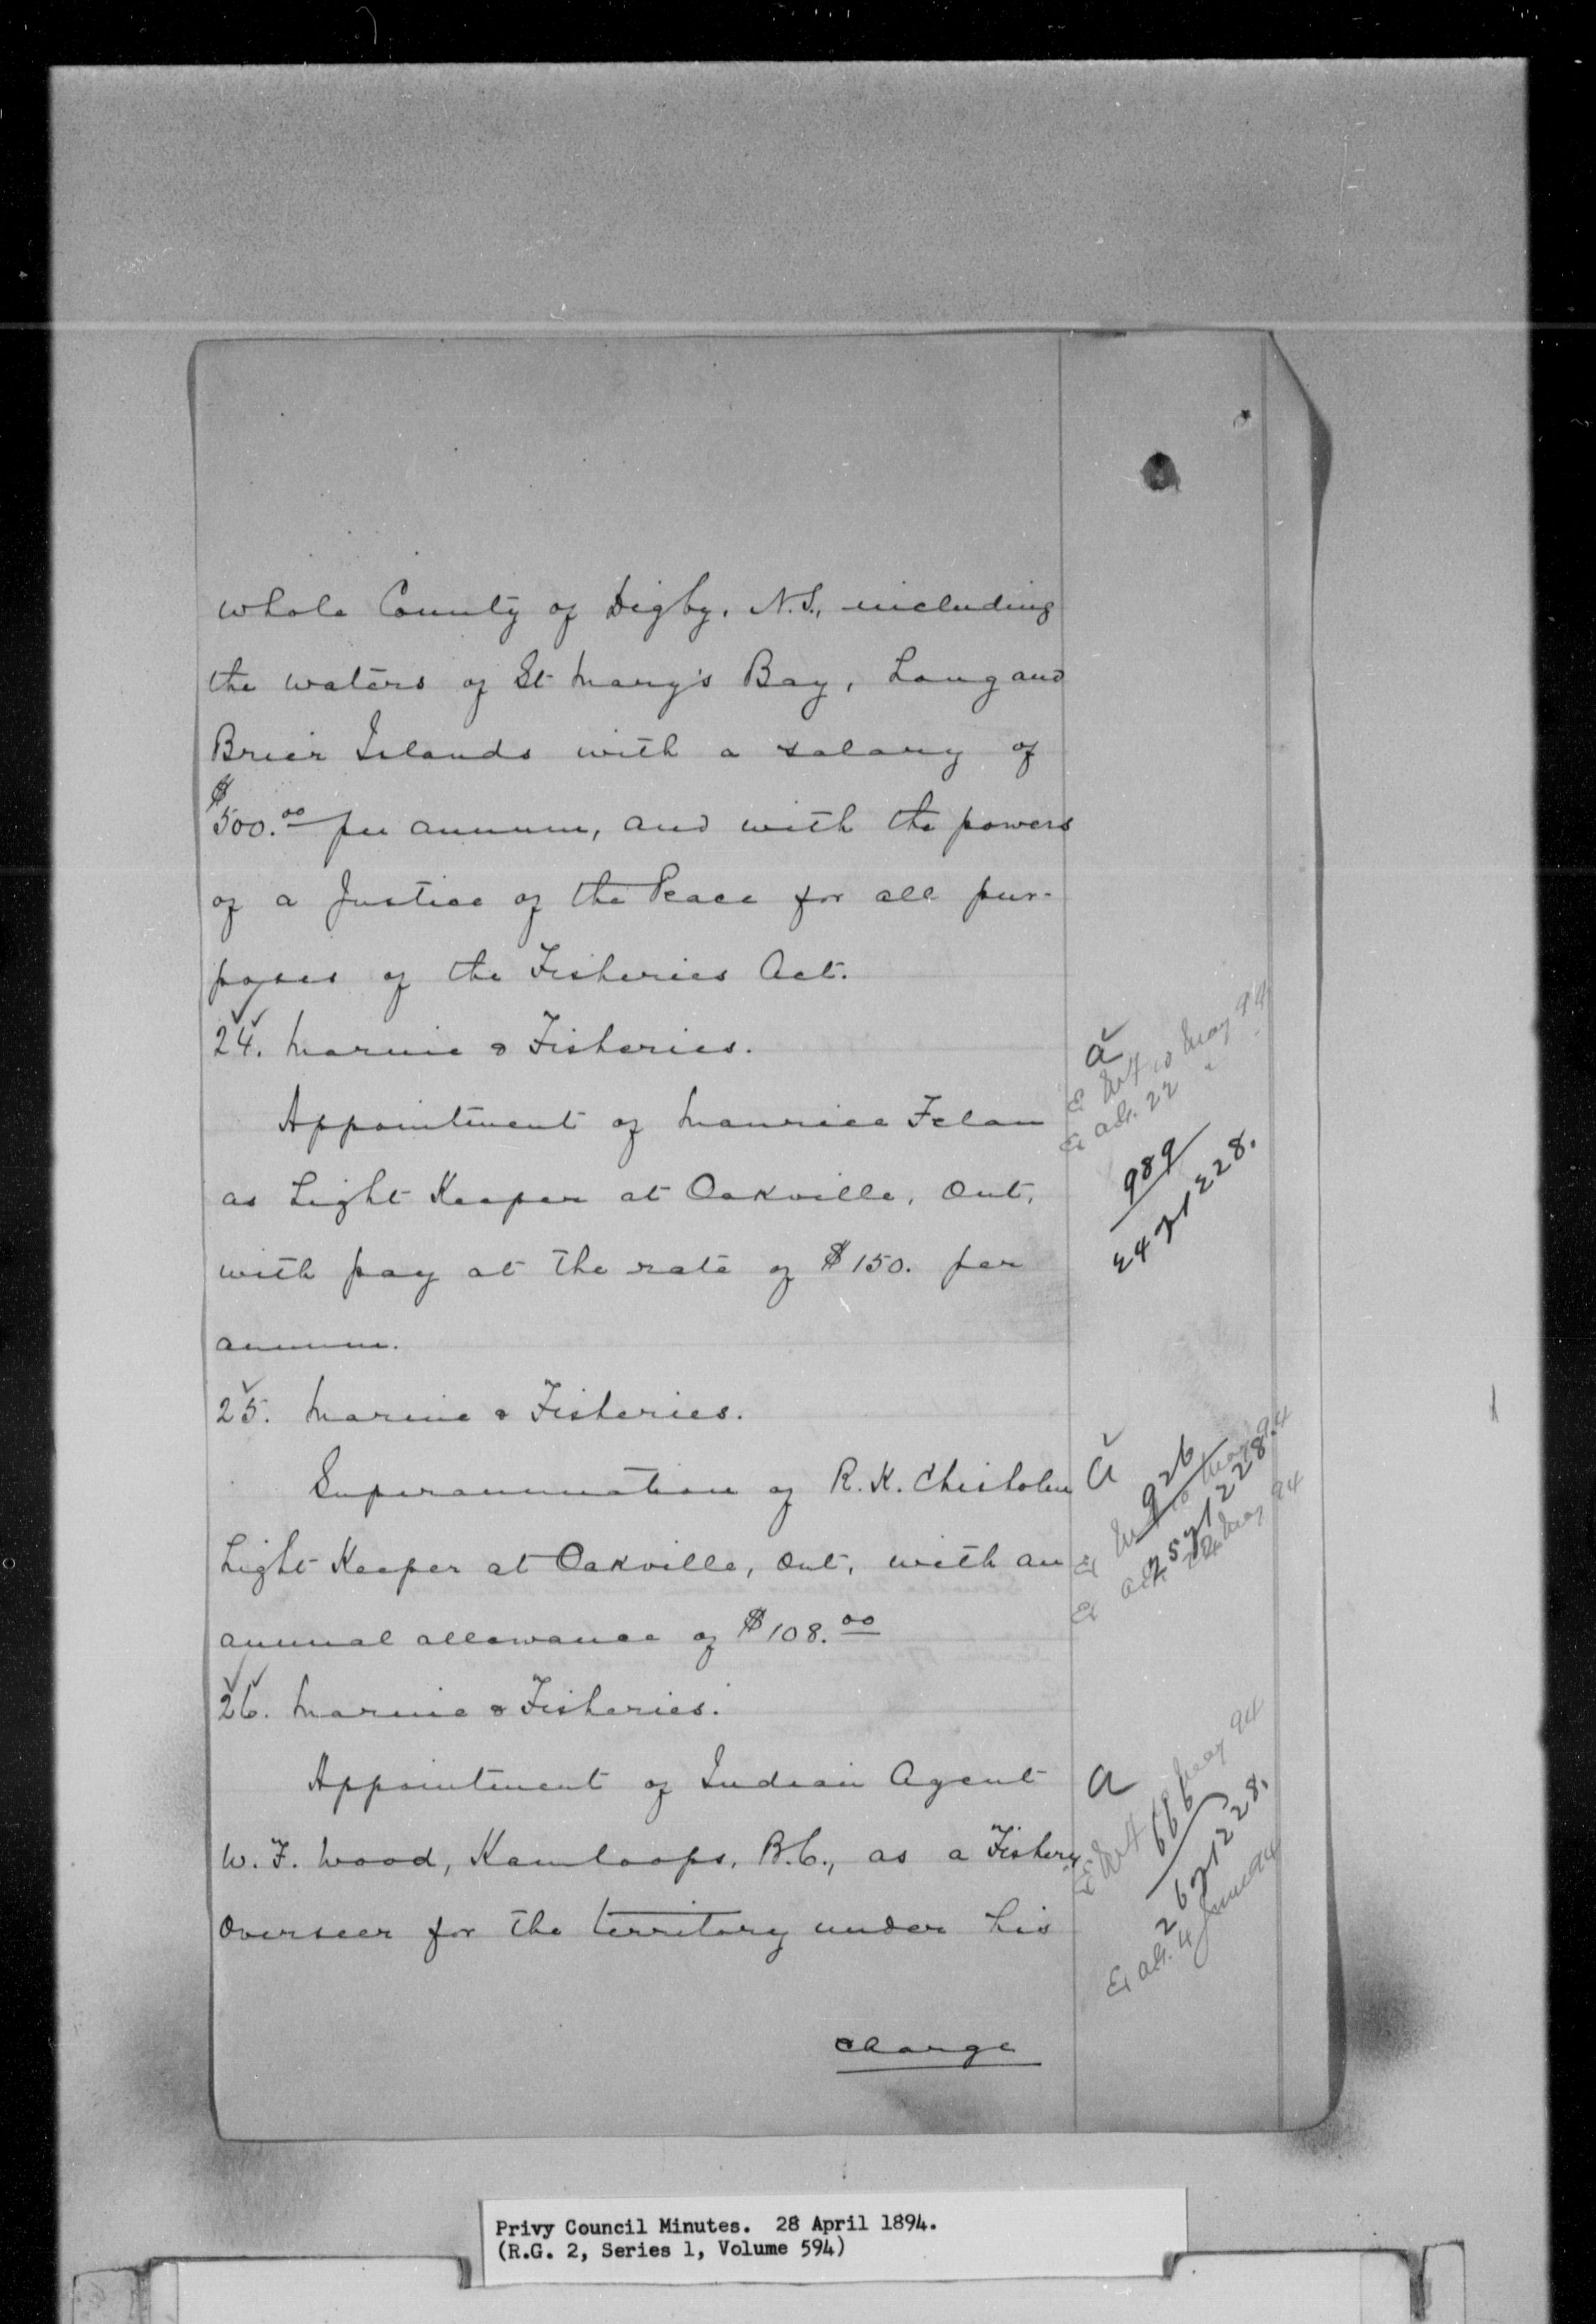 whole County of Digby, N.S., including
the waters of St Mary's Bay, Long and
Brier Islands with a salary of
$500.00 per annum, and with the powers
of a Justice of the Peace for all pur-
poses of the Fisheries Act.
24. Marine & Fisheries.
a
Appointment of Maurice Felan
as Light Keeper at Oakville, Ont,
with pay at the rate of $150. per
annum.
10 May 94
22 "
989
1228.
25. Marine & Fisheries.
Superannuation of R. K. Chisholm
Light Keeper at Oakville, Ont, with an
annual allowance of $108.00
a
926
10 May 94
25 1228.
May 94
26. Marine & Fisheries.
Appointment of Indian Agent
W. F. Wood, Kamloops, B.C., as a Fishery
Overseer for the territory under his
change
a
May 94
666
26 1228.
4 June 94
Privy Council Minutes. 28 April 1894.
(R.G. 2, Series 1, Volume 594)